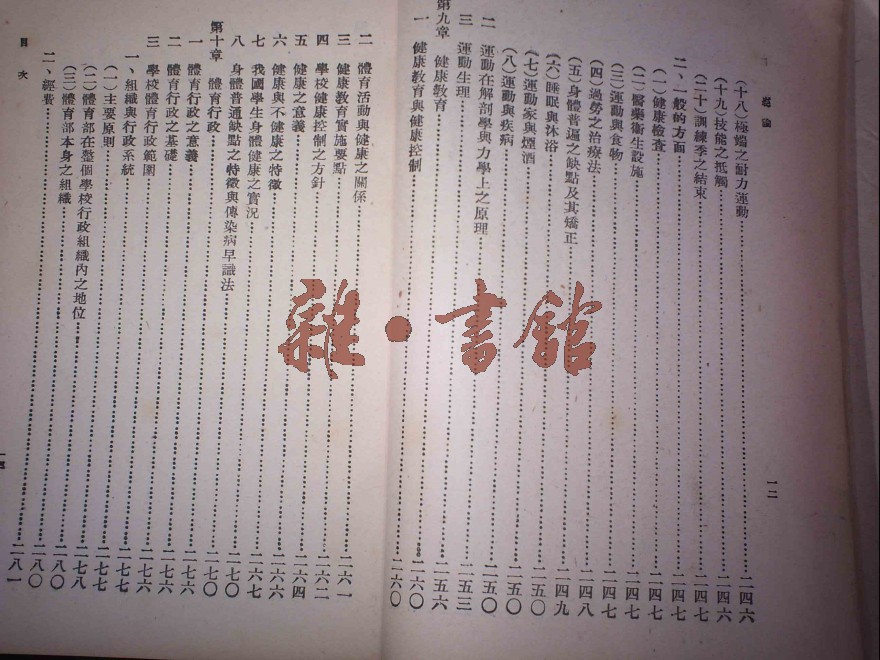 概論
一二
(十八)極端之耐力運動……二四六
(十九)技能之抵觸……二四六
(二十)訓練季之結束……二四七
二、一般的方面……二四七
(一)健康檢查……二四七
(二)醫藥衛生設施……二四七
(三)運動與食物……二四七
(四)過勞之治療法……二四八
(五)身體普遍之缺點及其矯正……二四九
(六)睡眠與沐浴……二五〇
(七)運動家與煙酒……二五〇
(八)運動與疾病……二五〇
二 運動在解剖學與力學上之原理……二五〇
三 運動生理……二五三
第九章 健康教育……二五六
一 健康教育與健康控制……二六〇
二 體育活動與健康之關係……二六一
三 健康教育實施要點……二六二
四 學校健康控制之方針……二六四
五 健康之意義……二六六
六 健康與不健康之特徵……二六七
七 我國學生身體健康之實況……二七〇
八 身體普通缺點之特徵與傳染病早識法……二七〇
第十章 體育行政……二七六
一 體育行政之意義……二七六
二 體育行政之基礎……二七六
三 學校體育行政範圍……二七七
一、組織與行政系統……二七七
(一)主要原則……二七八
(二)體育部在整個學校行政組織內之地位……二八〇
(三)體育部本身之組織……二八〇
二、經費……二八一
目次
雜·書館